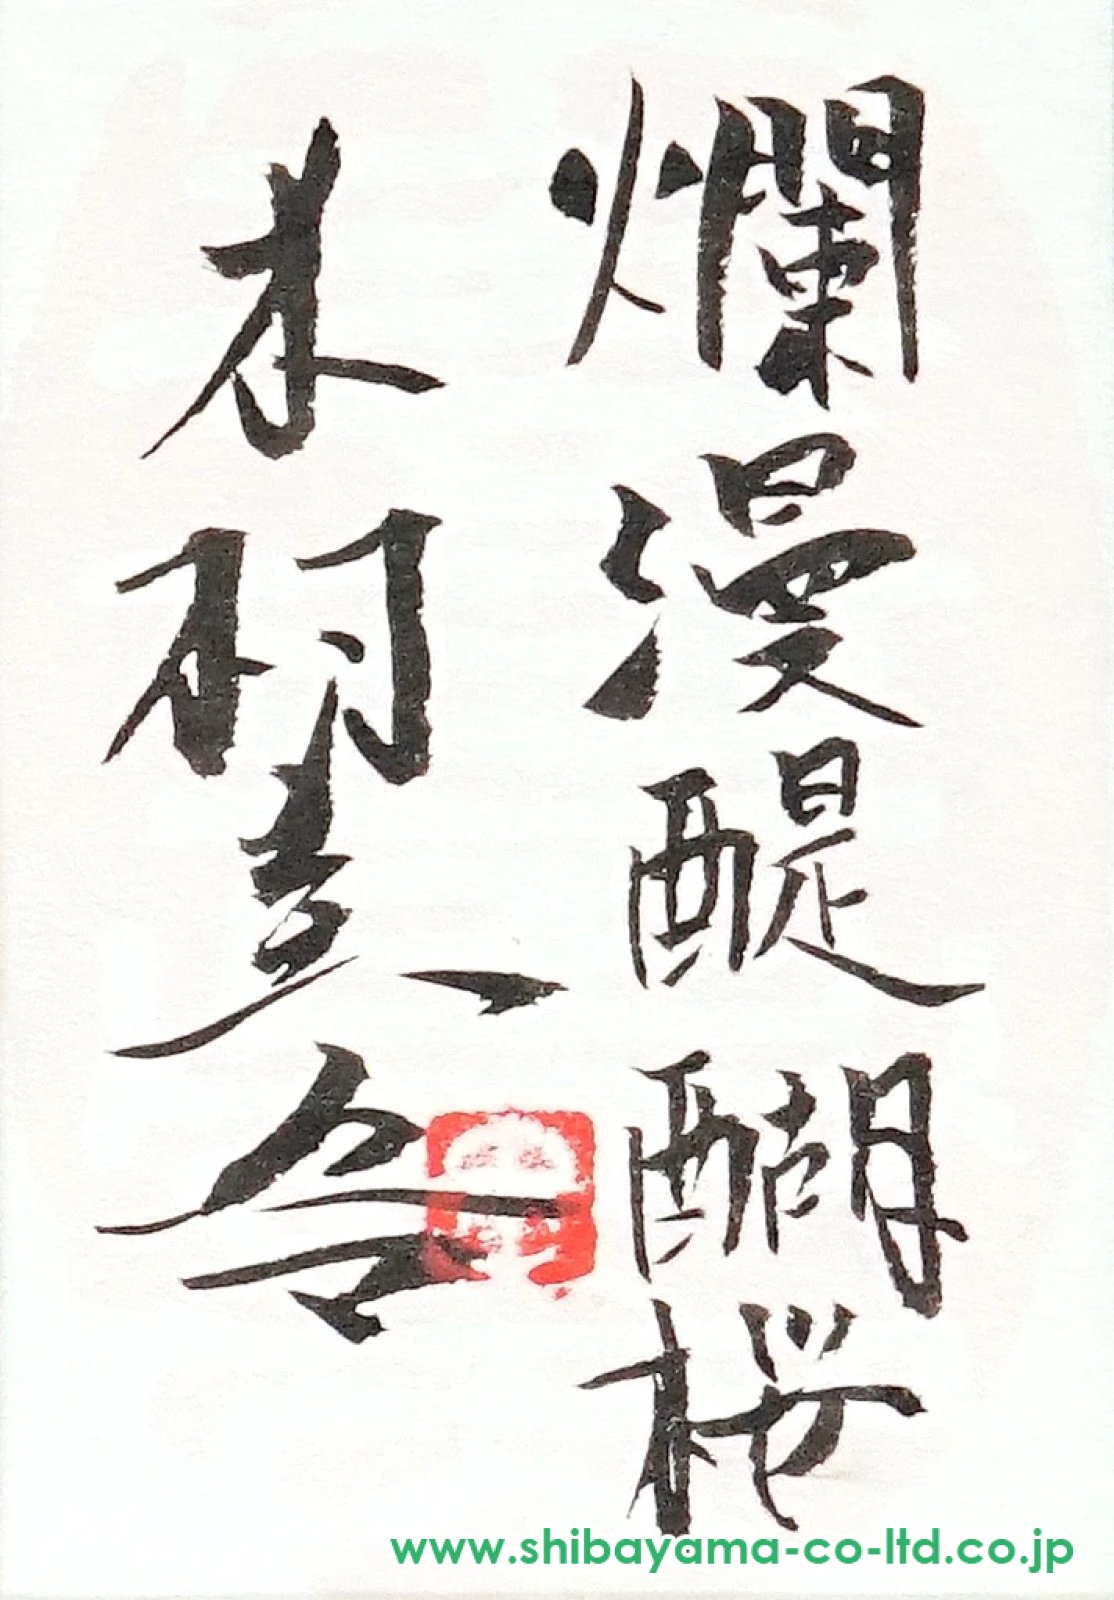 爛漫醍醐桜
木村圭吾
www.shibayama-co-ltd.co.jp